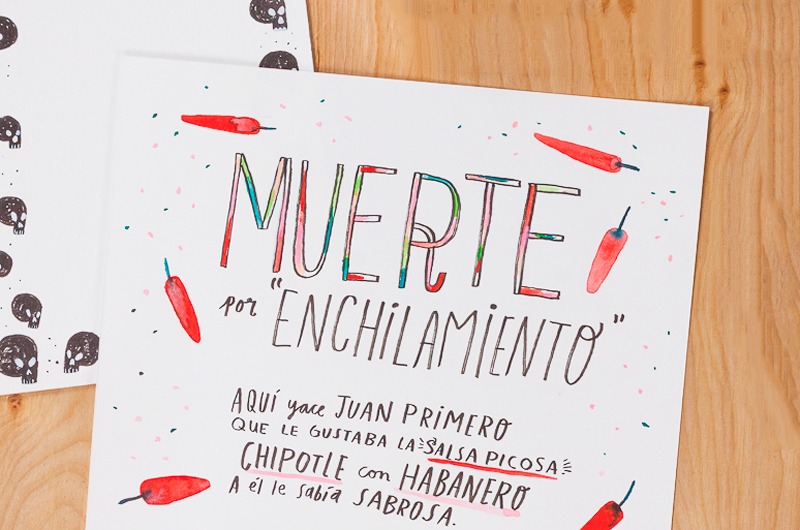 MUERTE
por "ENCHiLAMiENTO"
AQUÍ yace JUAN PRiMERO
QUE LE GUSTABA LA SALSA PICOSA
CHIPOTLE con HABANERO
A él le sabía SABROSA.